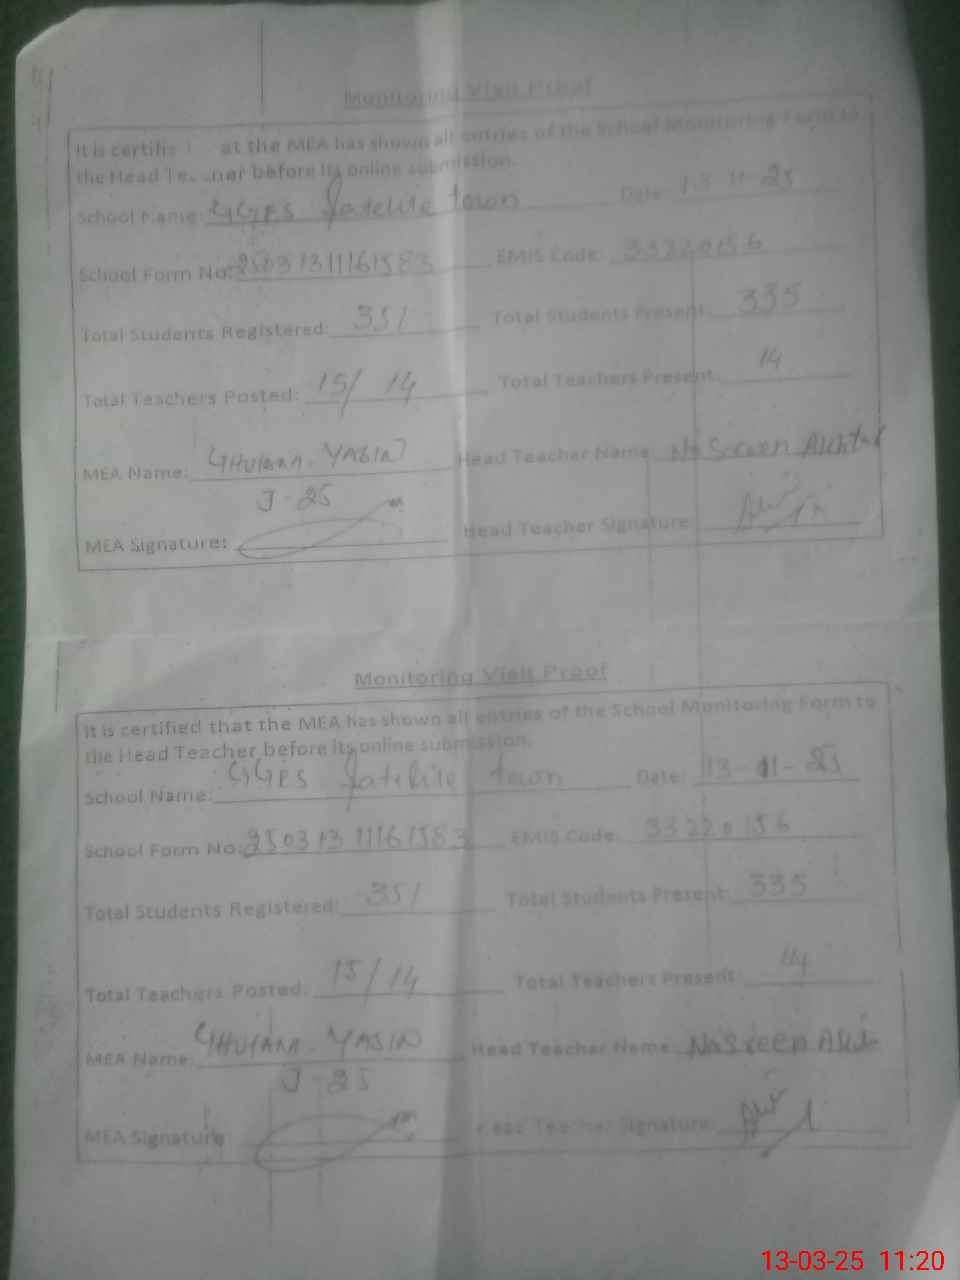 Monitoring Visit Proof
It is certifie at the MEA has shown all entries of the School Monitoring Form to
the Head Te ner before its online submission.
School Name: GGPS Satelite town Date: 13-11-25
School Form No: 25031311161583 EMIS Code: 33220156
Total Students Registered: 351 Total Students Present: 335
Total Teachers Posted: 15/ 14 Total Teachers Present: 14
MEA Name: GHULAM YASIN Head Teacher Name: Nasreen Akhtar
J-25
MEA Signature: Head Teacher Signature:
Monitoring Visit Proof
It is certified that the MEA has shown all entries of the School Monitoring Form to
the Head Teacher before its online submission.
School Name: GGPS Satelite town Date: 13-11-25
School Form No: 25031311161583 EMIS Code: 33220156
Total Students Registered: 351 Total Students Present: 335
Total Teachers Posted: 15/14 Total Teachers Present: 14
MEA Name: GHULAM YASIN Head Teacher Name: Nasreen
J-25
MEA Signature Head Teacher Signature:
13-03-25 11:20